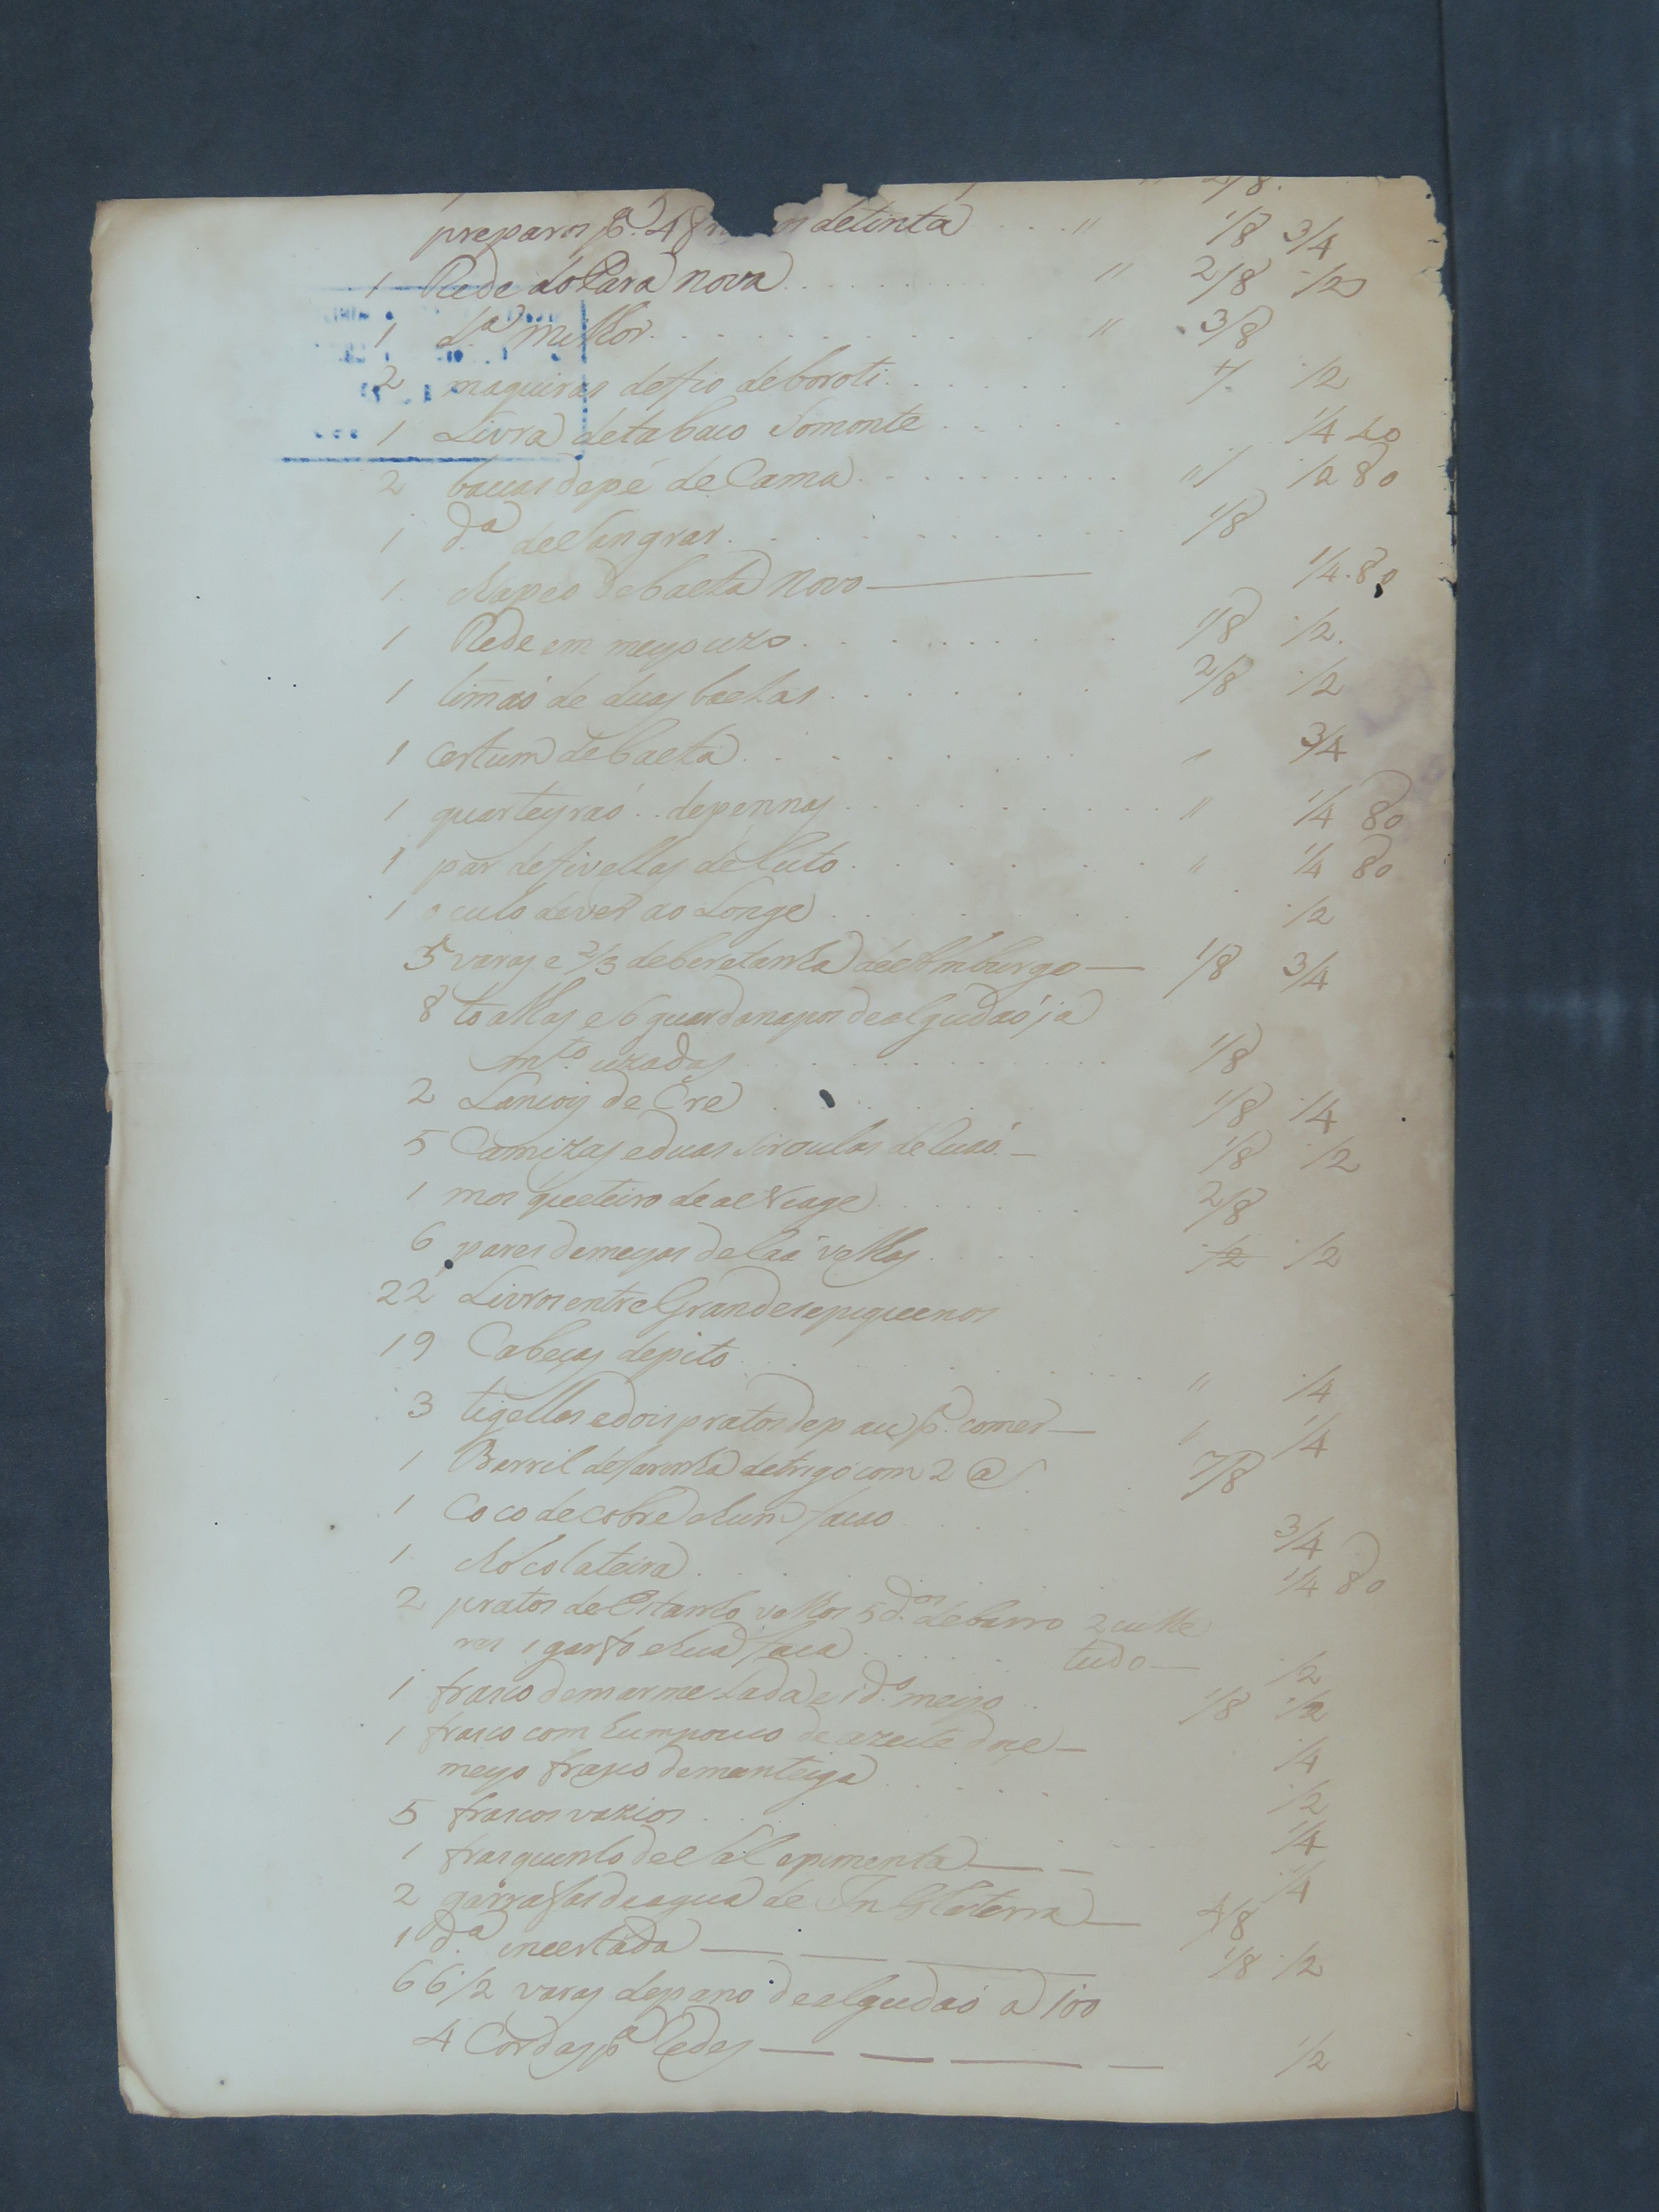 2/8.
preparos p.ª 4 detinta . . . " 1/8 3/4
1 Rede do Pará nova . . . " 2/8 1/2
1 d.ª milhor . . . " 3/8
2 maqueiras defio deboroti . . . 1/2
1 Livra detabaco Somonte . . . 1/4 40
2 bacias depé de Cama . . . " 1/2 80
1 d.ª deSangrar . . . 1/8
1 chapeo debaeta novo — 1/4. 80
1 Rede em meyo uzo . . . 1/8 1/2.
1 timaó de duas baetas . . . 2/8 1/2
1 certum debaeta . . . " 3/4
1 quarteyraó . . depennas . . . " 1/4 80
1 par defivellas deluto . . . " 1/4 80
1 oculo dever ao Longe . . . 1/2
5 varas e 2/3 debretanha deAmburgo — 1/8 3/4
8 toalhas e 6 guardanapos dealgudaó já
m.to uzadas . . . 1/8
2 Lancois de Cre . . . 1/8 1/4
5 Camizas eduas siroulas de — 1/8 1/2
1 mosqueteiro de . . . 2/8
6 pares demeyas delaá velhas . . . 1/2 1/2
22 Livros entre Grandes epiquenos
19 Cabeças depito . . . " 1/4
3 tigellas edois pratos depau p.ª comer — " 1/4
1 Barril defarinha detrigo com 2 @ 7/8
1 Coco decobre ehum taxo . . . 3/4
1. chocolateira . . . 1/4 80
2 pratos deEstanho velhos 5 d.os debarro 2 culhe
res 1 garfo ehua faca . . . tudo — 1/2
1 frasco demarmelada e 1 d.o meyo . . . 1/8 1/2
1 frasco com hum pouco de azeite doce — 1/4
meyo frasco demanteiga . . . 1/2
5 frascos vazios . . . 1/4
1 frasquinho deSal epimenta — — 1/4
2 garrafas deagua de Inglaterra — 4/8
1 d.ª encertada — — — 1/8 1/2
66 1/2 varas depano dealgudaó a 100
4 Cordas p.ª Redes — — — — 1/2